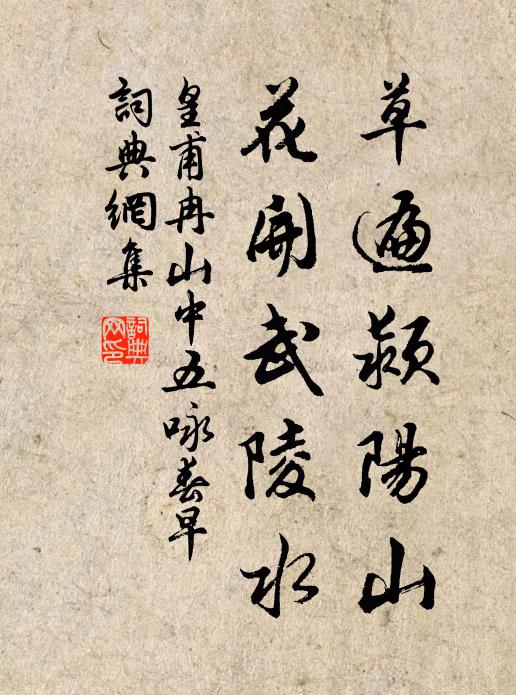 草遍潁陽山
花開武陵水
皇甫冉山中五咏春早
詞典網集
詞典網印